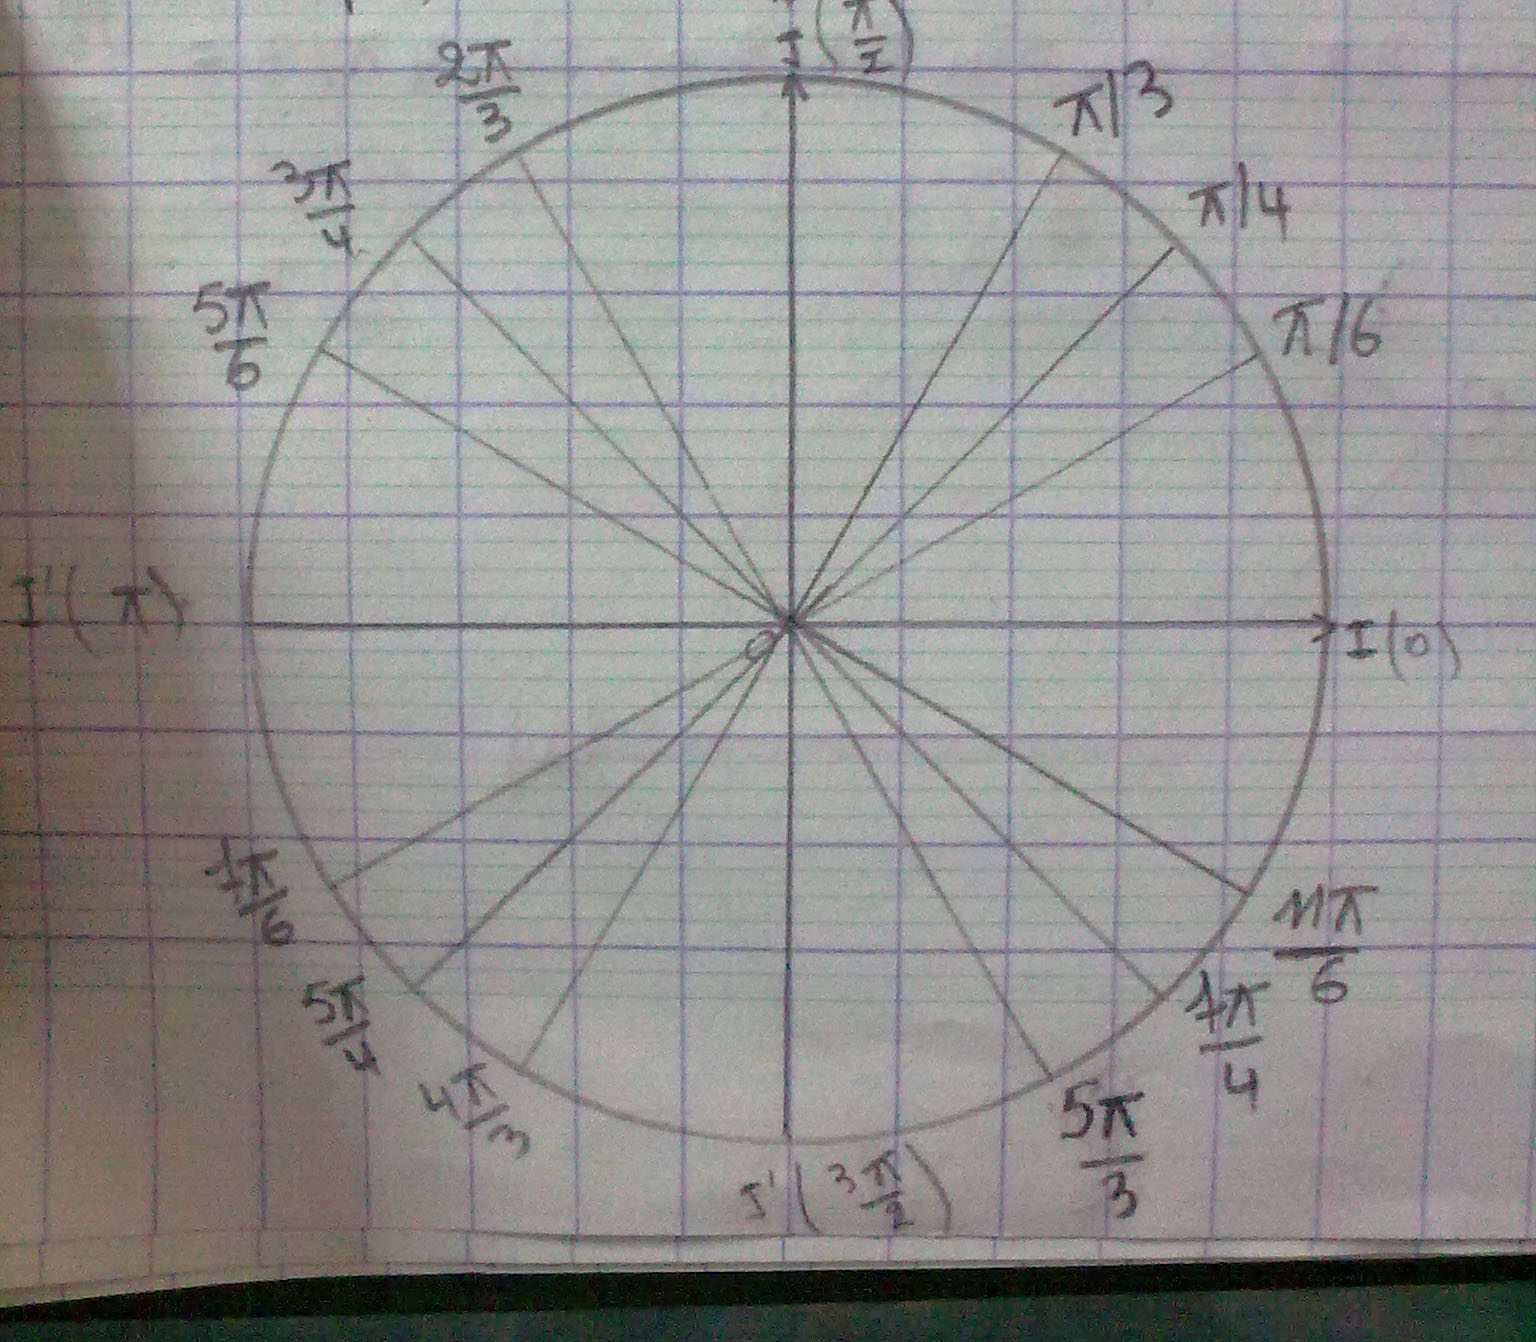 J(π/2)
2π/3
π/3
3π/4
π/4
5π/6
π/6
I'(π)
O
I(0)
7π/6
11π/6
5π/4
7π/4
4π/3
5π/3
J'(3π/2)